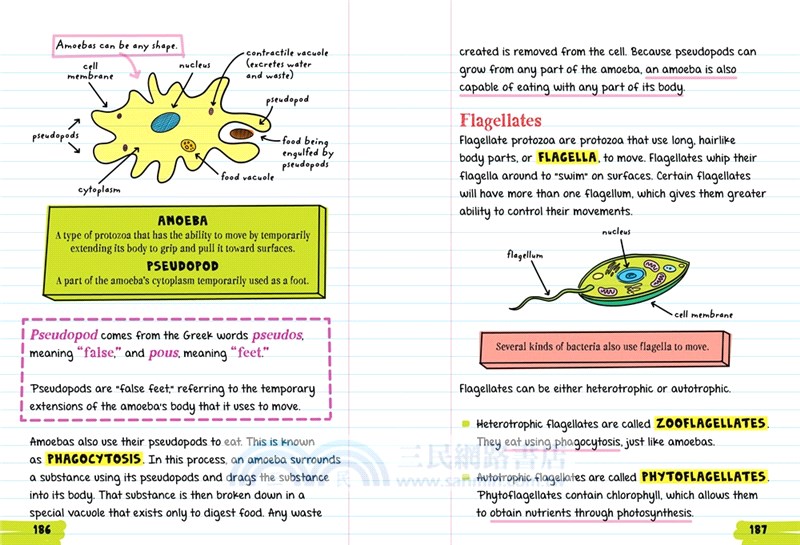 Amoebas can be any shape.
cell
membrane
nucleus
contractile vacuole
(excretes water
and waste)
pseudopod
pseudopods
food being
engulfed by
pseudopods
food vacuole
cytoplasm
AMOEBA
A type of protozoa that has the ability to move by temporarily
extending its body to grip and pull it toward surfaces.
PSEUDOPOD
A part of the amoeba's cytoplasm temporarily used as a foot.
Pseudopod comes from the Greek words pseudos,
meaning "false," and pous, meaning "feet."
Pseudopods are "false feet," referring to the temporary
extensions of the amoeba's body that it uses to move.
Amoebas also use their pseudopods to eat. This is known
as PHAGOCYTOSIS. In this process, an amoeba surrounds
a substance using its pseudopods and drags the substance
into its body. That substance is then broken down in a
special vacuole that exists only to digest food. Any waste
186
created is removed from the cell. Because pseudopods can
grow from any part of the amoeba, an amoeba is also
capable of eating with any part of its body.
Flagellates
Flagellate protozoa are protozoa that use long, hairlike
body parts, or FLAGELLA, to move. Flagellates whip their
flagella around to "swim" on surfaces. Certain flagellates
will have more than one flagellum, which gives them greater
ability to control their movements.
nucleus
flagellum
cell membrane
Several kinds of bacteria also use flagella to move.
Flagellates can be either heterotrophic or autotrophic.
Heterotrophic flagellates are called ZOOFLAGELLATES.
They eat using phagocytosis, just like amoebas.
Autotrophic flagellates are called PHYTOFLAGELLATES.
Phytoflagellates contain chlorophyll, which allows them
to obtain nutrients through photosynthesis.
187
三民網路書店